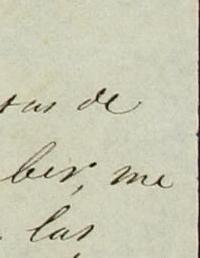 tas de
ber, me
las